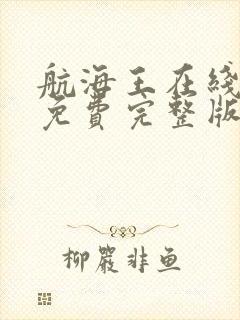 航海王在綫
免費完整版
柳嚴非鱼